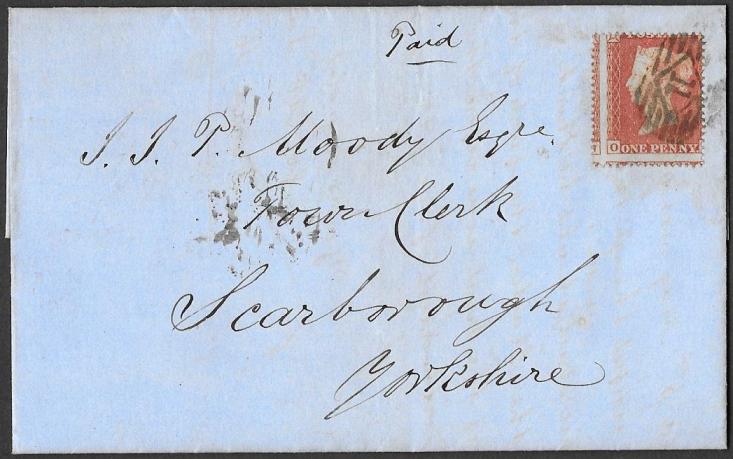 Paid
J. J. P. Moody Esqre.
Town Clerk
Scarborough
Yorkshire
O ONE PENNY